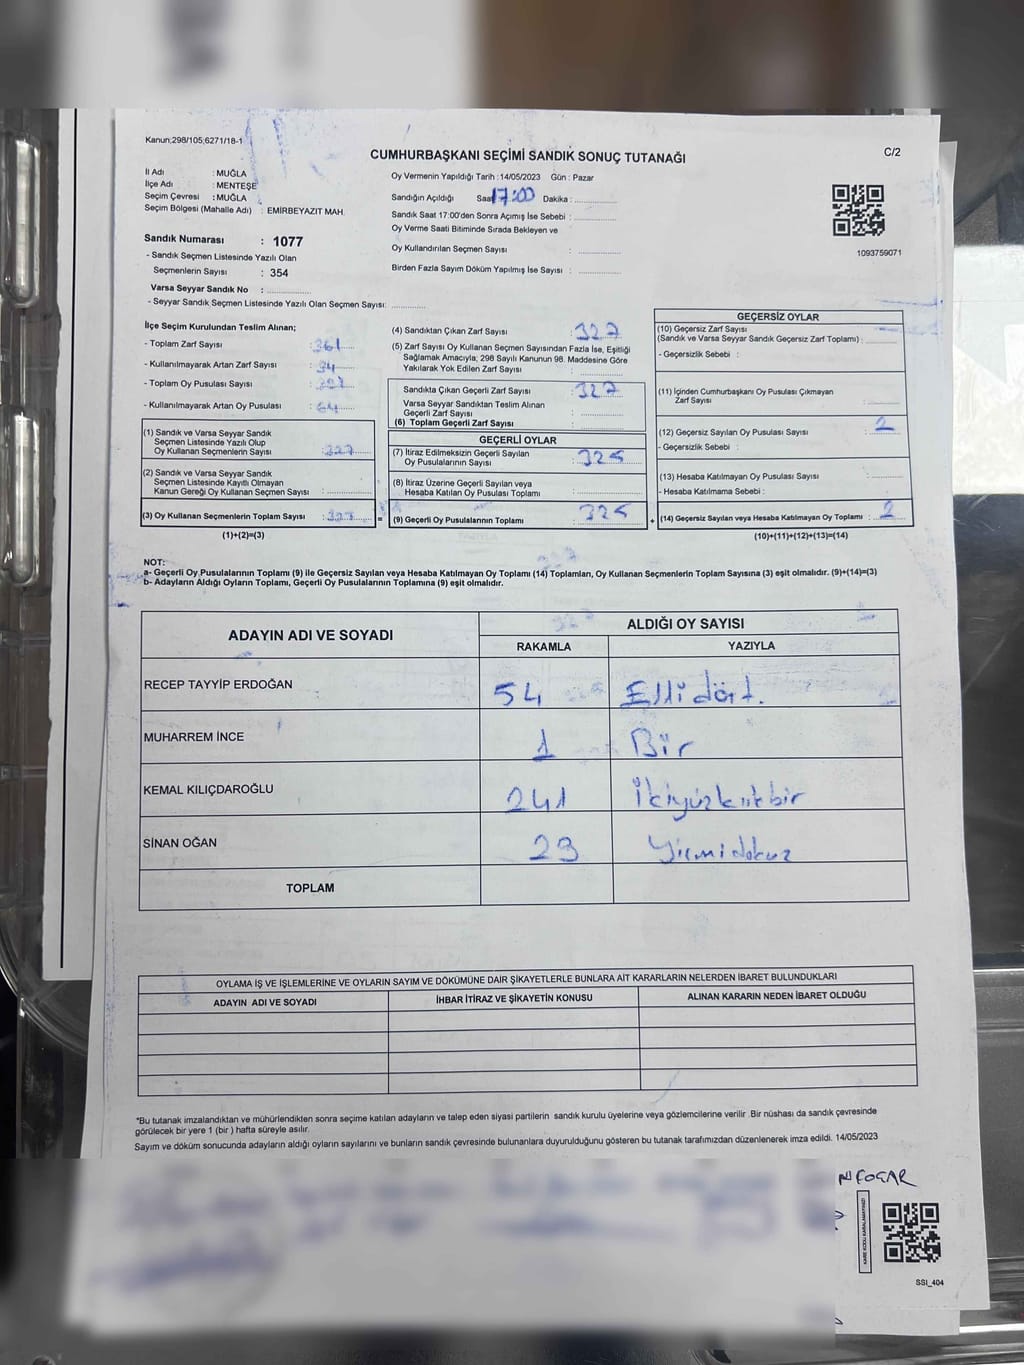 Kanun;298/105;6271/18-1
CUMHURBAŞKANI SEÇİMİ SANDIK SONUÇ TUTANAĞI
C/2
İl Adı : MUĞLA
İlçe Adı : MENTEŞE
Seçim Çevresi : MUĞLA
Seçim Bölgesi (Mahalle Adı) : EMİRBEYAZIT MAH.
Sandık Numarası : 1077
- Sandık Seçmen Listesinde Yazılı Olan
Seçmenlerin Sayısı : 354
Varsa Seyyar Sandık No :
- Seyyar Sandık Seçmen Listesinde Yazılı Olan Seçmen Sayısı:
Oy Vermenin Yapıldığı Tarih : 14/05/2023 Gün : Pazar
Sandığın Açıldığı Saat 17:00 Dakika :
Sandık Saat 17:00'den Sonra Açımış İse Sebebi :
Oy Verme Saati Bitiminde Sırada Bekleyen ve
Oy Kullandırılan Seçmen Sayısı :
Birden Fazla Sayım Döküm Yapılmış İse Sayısı :
1093759071
İlçe Seçim Kurulundan Teslim Alınan;
- Toplam Zarf Sayısı : 361
- Kullanılmayarak Artan Zarf Sayısı : 34
- Toplam Oy Pusulası Sayısı :
- Kullanılmayarak Artan Oy Pusulası : 64
(1) Sandık ve Varsa Seyyar Sandık
Seçmen Listesinde Yazılı Olup
Oy Kullanan Seçmenlerin Sayısı : 327
(2) Sandık ve Varsa Seyyar Sandık
Seçmen Listesinde Kayıtlı Olmayan
Kanun Gereği Oy Kullanan Seçmen Sayısı :
(3) Oy Kullanan Seçmenlerin Toplam Sayısı : 327 =
(1)+(2)=(3)
(4) Sandıktan Çıkan Zarf Sayısı : 327
(5) Zarf Sayısı Oy Kullanan Seçmen Sayısından Fazla İse, Eşitliği
Sağlamak Amacıyla; 298 Sayılı Kanunun 98. Maddesine Göre
Yakılarak Yok Edilen Zarf Sayısı :
Sandıkta Çıkan Geçerli Zarf Sayısı : 327
Varsa Seyyar Sandıktan Teslim Alınan
Geçerli Zarf Sayısı :
(6) Toplam Geçerli Zarf Sayısı :
GEÇERLİ OYLAR
(7) İtiraz Edilmeksizin Geçerli Sayılan
Oy Pusulalarının Sayısı : 325
(8) İtiraz Üzerine Geçerli Sayılan veya
Hesaba Katılan Oy Pusulası Toplamı :
(9) Geçerli Oy Pusulalarının Toplamı : 325 +
GEÇERSİZ OYLAR
(10) Geçersiz Zarf Sayısı
(Sandık ve Varsa Seyyar Sandık Geçersiz Zarf Toplamı) :
- Geçersizlik Sebebi :
(11) İçinden Cumhurbaşkanı Oy Pusulası Çıkmayan
Zarf Sayısı :
(12) Geçersiz Sayılan Oy Pusulası Sayısı : 2
- Geçersizlik Sebebi :
(13) Hesaba Katılmayan Oy Pusulası Sayısı :
- Hesaba Katılmama Sebebi :
(14) Geçersiz Sayılan veya Hesaba Katılmayan Oy Toplamı : 2
(10)+(11)+(12)+(13)=(14)
NOT:
a- Geçerli Oy Pusulalarının Toplamı (9) ile Geçersiz Sayılan veya Hesaba Katılmayan Oy Toplamı (14) Toplamları, Oy Kullanan Seçmenlerin Toplam Sayısına (3) eşit olmalıdır. (9)+(14)=(3)
b- Adayların Aldığı Oyların Toplamı, Geçerli Oy Pusulalarının Toplamına (9) eşit olmalıdır.
ADAYIN ADI VE SOYADI
ALDIĞI OY SAYISI
RAKAMLA YAZIYLA
RECEP TAYYİP ERDOĞAN 54 Elli dört.
MUHARREM İNCE 1 Bir
KEMAL KILIÇDAROĞLU 241 İkiyüzkırkbir
SİNAN OĞAN 29 Yirmidokuz
TOPLAM
OYLAMA İŞ VE İŞLEMLERİNE VE OYLARIN SAYIM VE DÖKÜMÜNE DAİR ŞİKAYETLERLE BUNLARA AİT KARARLARIN NELERDEN İBARET BULUNDUKLARI
ADAYIN ADI VE SOYADI İHBAR İTİRAZ VE ŞİKAYETİN KONUSU ALINAN KARARIN NEDEN İBARET OLDUĞU
*Bu tutanak imzalandıktan ve mühürlendikten sonra seçime katılan adayların ve talep eden siyasi partilerin sandık kurulu üyelerine veya gözlemcilerine verilir .Bir nüshası da sandık çevresinde
görülecek bir yere 1 (bir ) hafta süreyle asılır.
Sayım ve döküm sonucunda adayların aldığı oyların sayılarını ve bunların sandık çevresinde bulunanlara duyurulduğunu gösteren bu tutanak tarafımızdan düzenlenerek imza edildi. 14/05/2023
KARE KODU KARALAMAYINIZ!
SSI_404